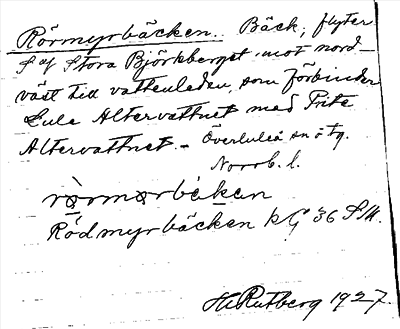 Rörmyrbäcken. Bäck, flyter
S af Stora Björkberget mot nord-
väst till vattenleden, som förbinder
Lule Altervattnet med Pite
Altervattnet. - Överluleå sn ö tg.
Norrb. l.
Rödmyrbäcken kG 36 SW.
H Rutberg 1927.